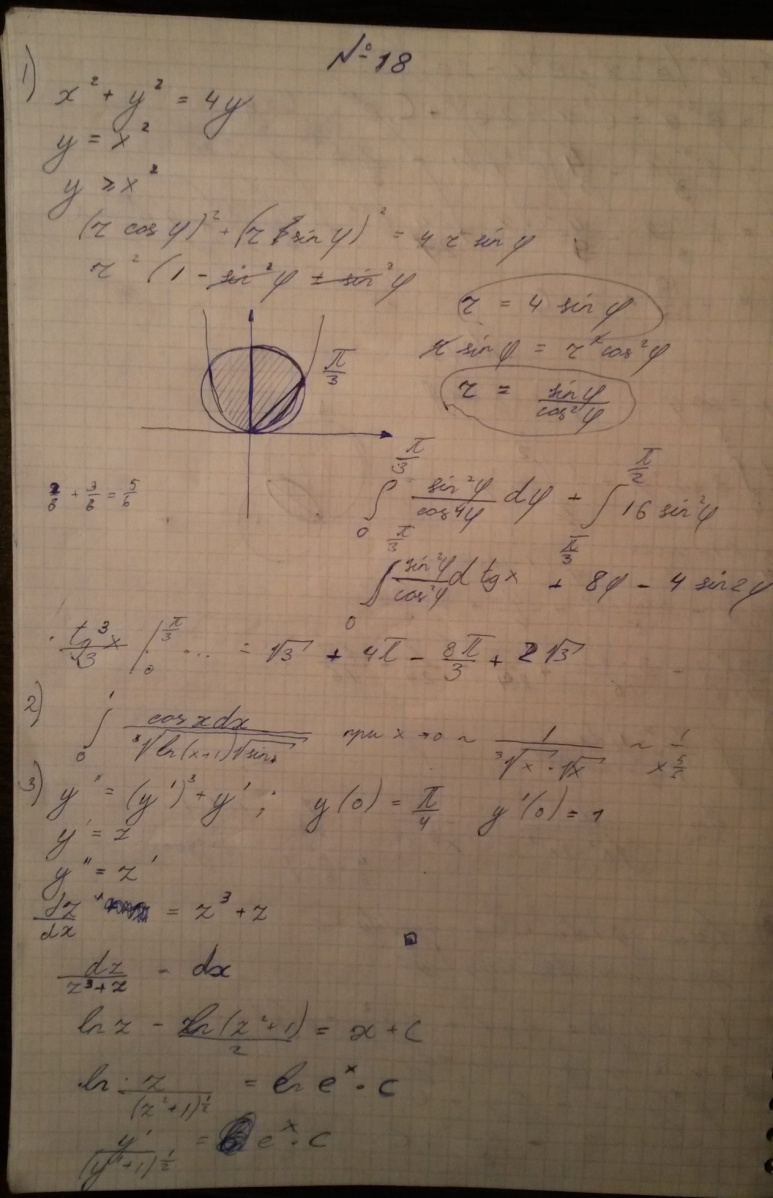 №18
1) x² + y² = 4y
y = x²
y ≥ x²
(r cos φ)² + (r sin φ)² = 4 r sin φ
r² (1 - sin²φ + sin²φ
r = 4 sin φ
r sin φ = r² cos²φ
r = sin φ / cos²φ
π/3
2/6 + 3/6 = 5/6
∫₀^{π/3} sin²φ / cos⁴φ dφ + ∫_{π/3}^{π/2} 16 sin²φ
∫₀^{π/3} sin²φ / cos²φ d tg x + 8φ - 4 sin 2φ
tg³x / 3 |₀^{π/3} ... = √3 + 4π - 8π/3 + 2√3
2) ∫₀¹ cos x dx / ∛ln(x+1) √sin x при x → 0 ~ 1 / ∛x · √x ~ 1 / x^{5/6}
3) y'' = (y')³ + y' ; y(0) = π/4 y'(0) = 1
y' = z
y'' = z'
dz/dx = z³ + z
dz / z³ + z = dx
ln z - ln(z² + 1) / 2 = x + C
ln z / (z² + 1)^{1/2} = ln eˣ · C
y' / (y'² + 1)^{1/2} = eˣ · C